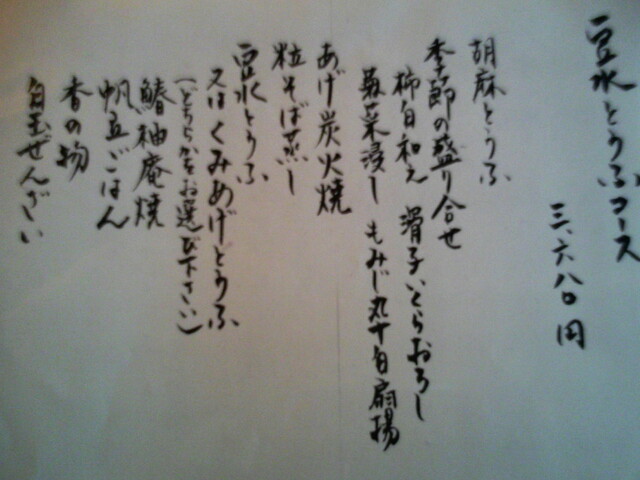 豆水とうふコース
三、六八〇円
胡麻とうふ
季節の盛り合せ
柿白和え 滑子いくらおろし
菊菜浸し もみじ丸十白扇揚
あげ炭火焼
粒そば蒸し
豆水とうふ
又はくみあげとうふ
(どちらかをお選び下さい)
鰆柚庵焼
帆立ごはん
香の物
白玉ぜんざい